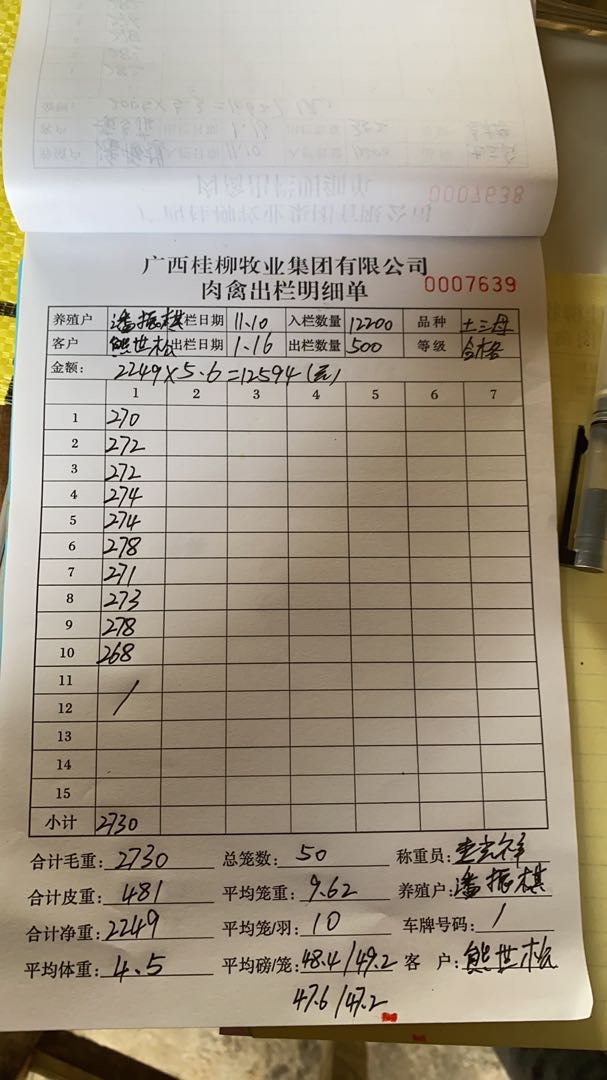 0007638
广西桂柳牧业集团有限公司
肉禽出栏明细单 0007639
养殖户 潘振棋 栏日期 11.10 入栏数量 12200 品种 土三母
客户 熊世松 出栏日期 1.16 出栏数量 500 等级 合格
金额: 2249×5.6=12594(元)
1 2 3 4 5 6 7
1 270
2 272
3 272
4 274
5 274
6 278
7 271
8 273
9 278
10 268
11
12 /
13
14
15
小计 2730
合计毛重: 2730 总笼数: 50 称重员:
合计皮重: 481 平均笼重: 9.62 养殖户: 潘振棋
合计净重: 2249 平均笼/羽: 10 车牌号码: /
平均体重: 4.5 平均磅/笼: 48.4/49.2 客户: 熊世松
47.6/47.2